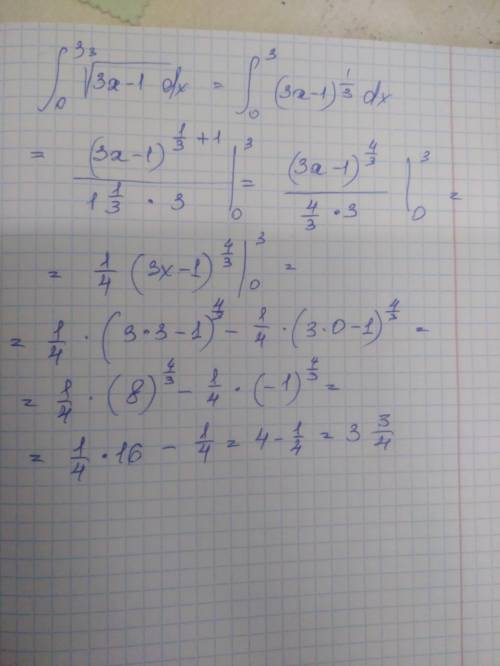 ∫₀³ ³√(3x-1) dx = ∫₀³ (3x-1)^(1/3) dx
= (3x-1)^(1/3 + 1) / (1 1/3 · 3) |₀³ = (3x-1)^(4/3) / (4/3 · 3) |₀³ =
= 1/4 (3x-1)^(4/3) |₀³ =
= 1/4 · (3·3-1)^(4/3) - 1/4 · (3·0-1)^(4/3) =
= 1/4 · (8)^(4/3) - 1/4 · (-1)^(4/3) =
= 1/4 · 16 - 1/4 = 4 - 1/4 = 3 3/4